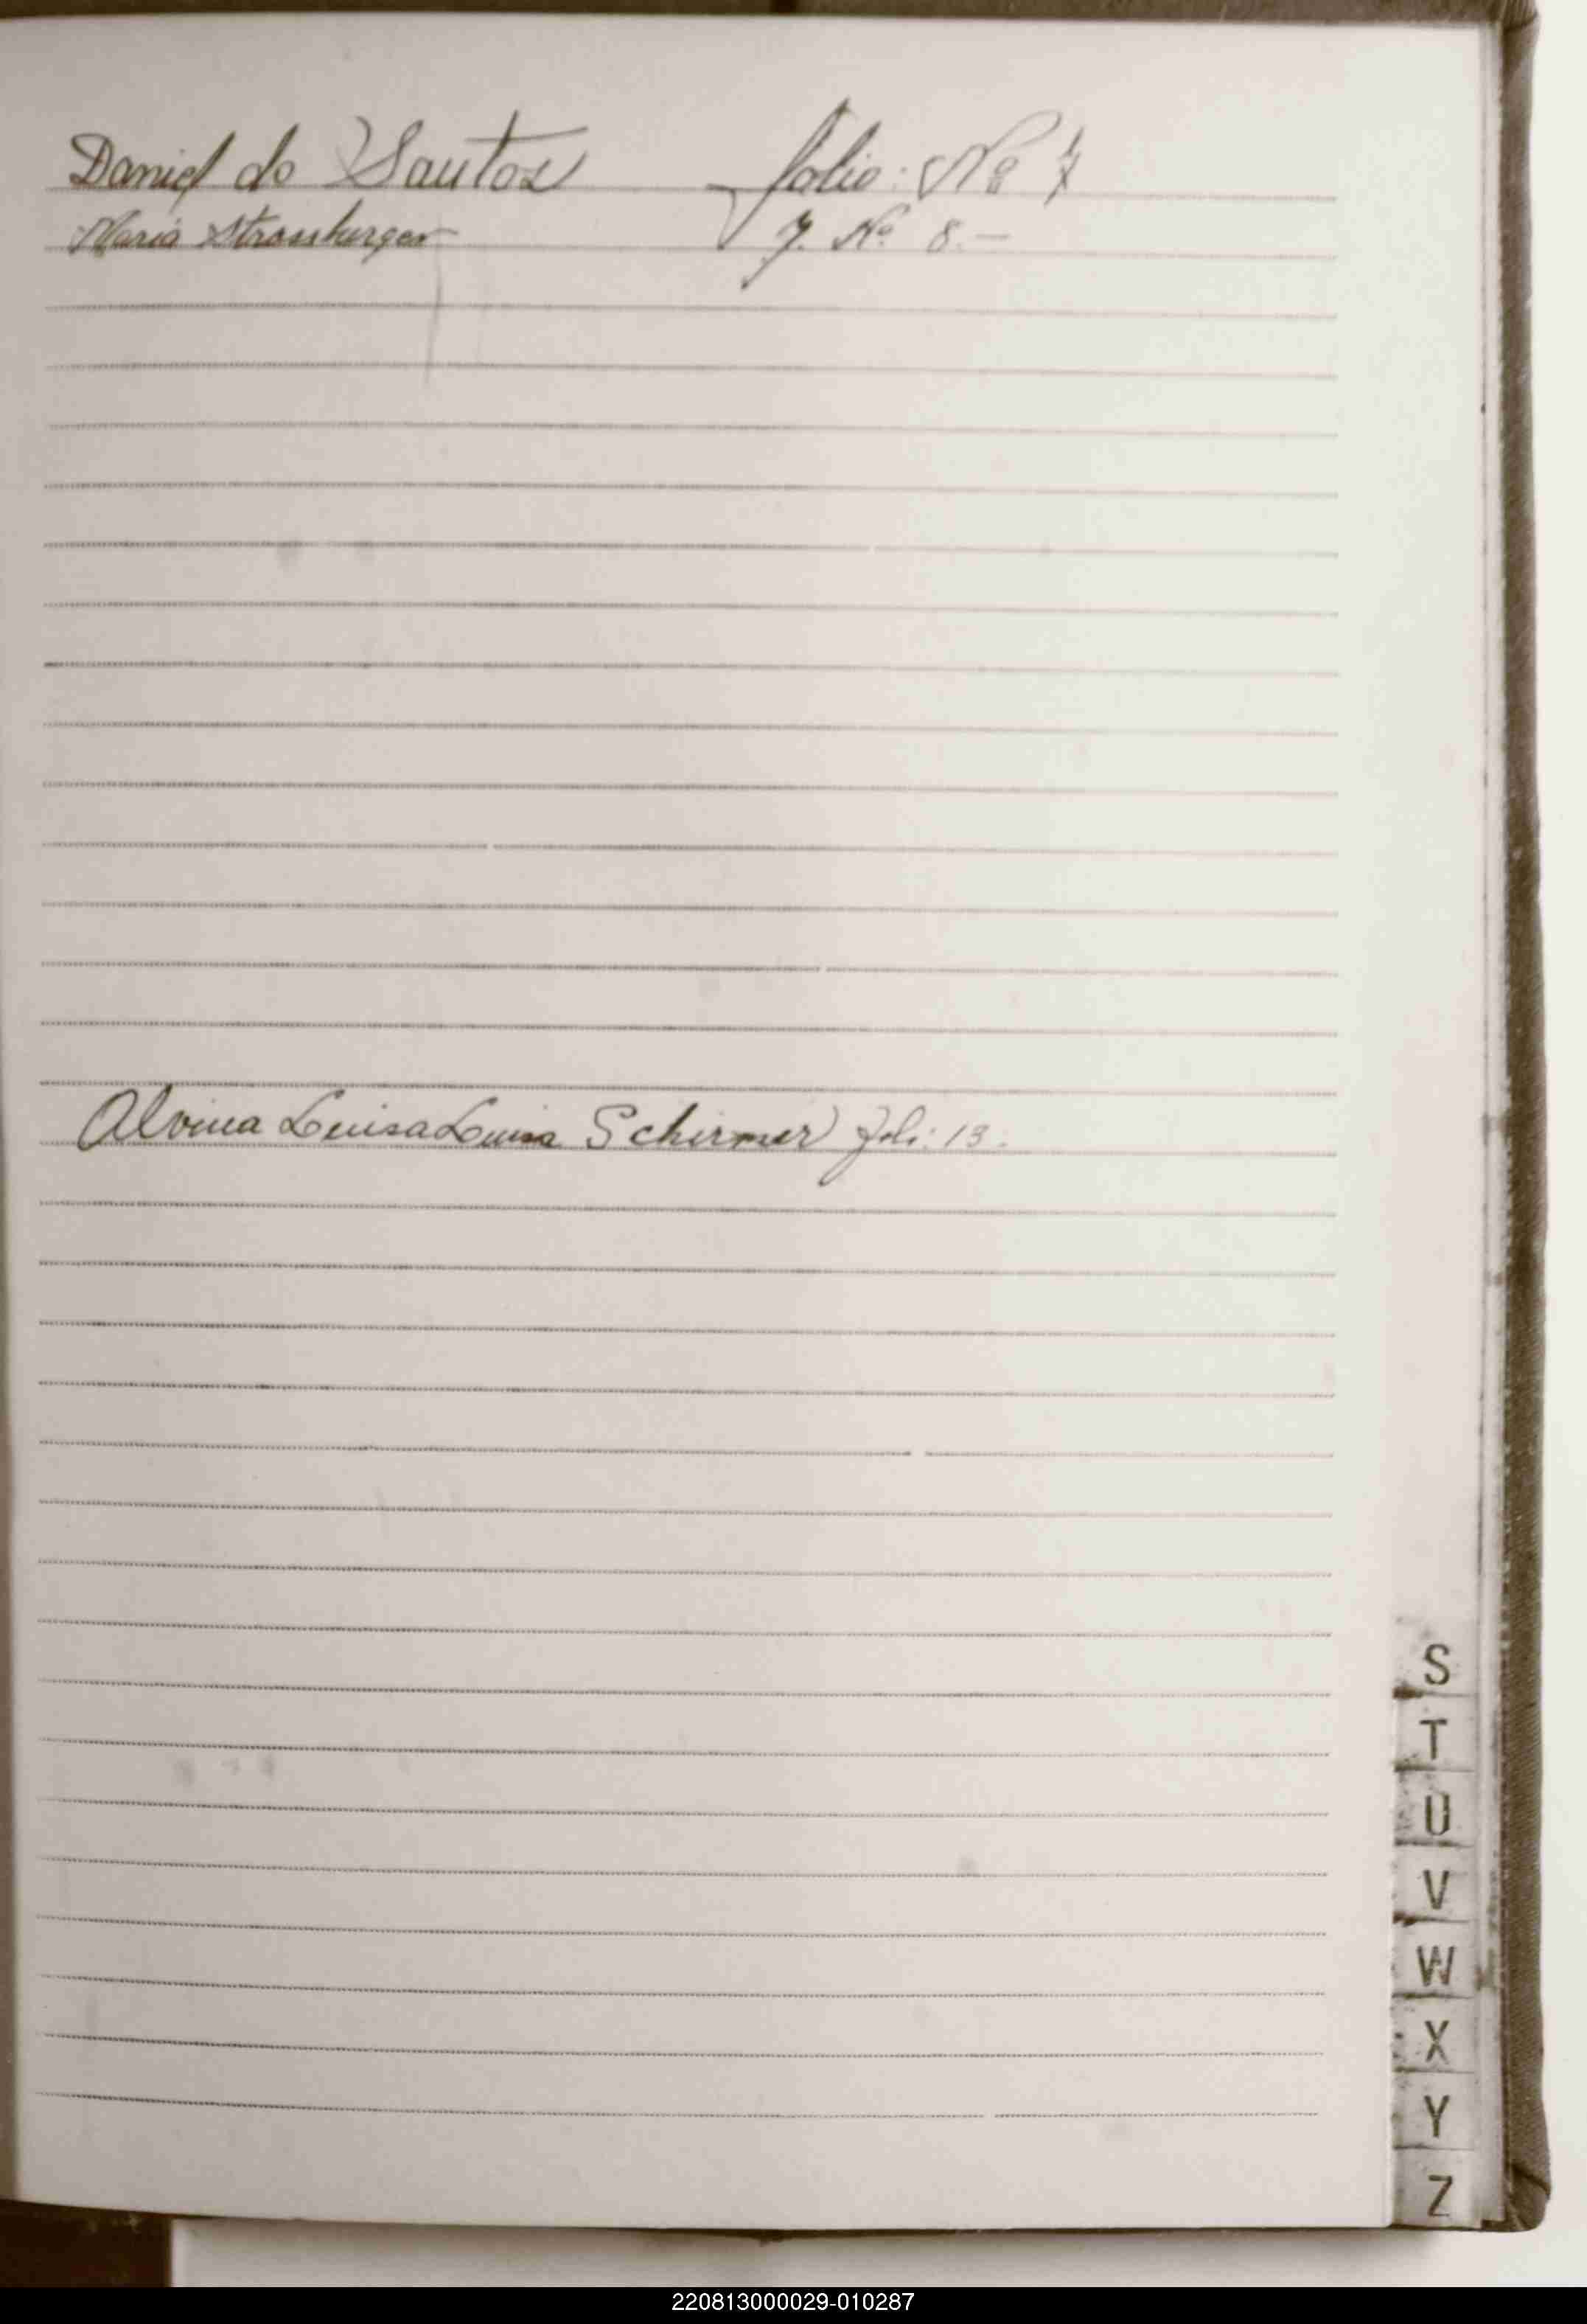 Daniel do Santos folio: No 7
Maria Strassburger f. No 8.—
Alvina Luisa Luisa Schirmer Foli: 13.
S
T
U
V
W
X
Y
Z
220813000029-010287